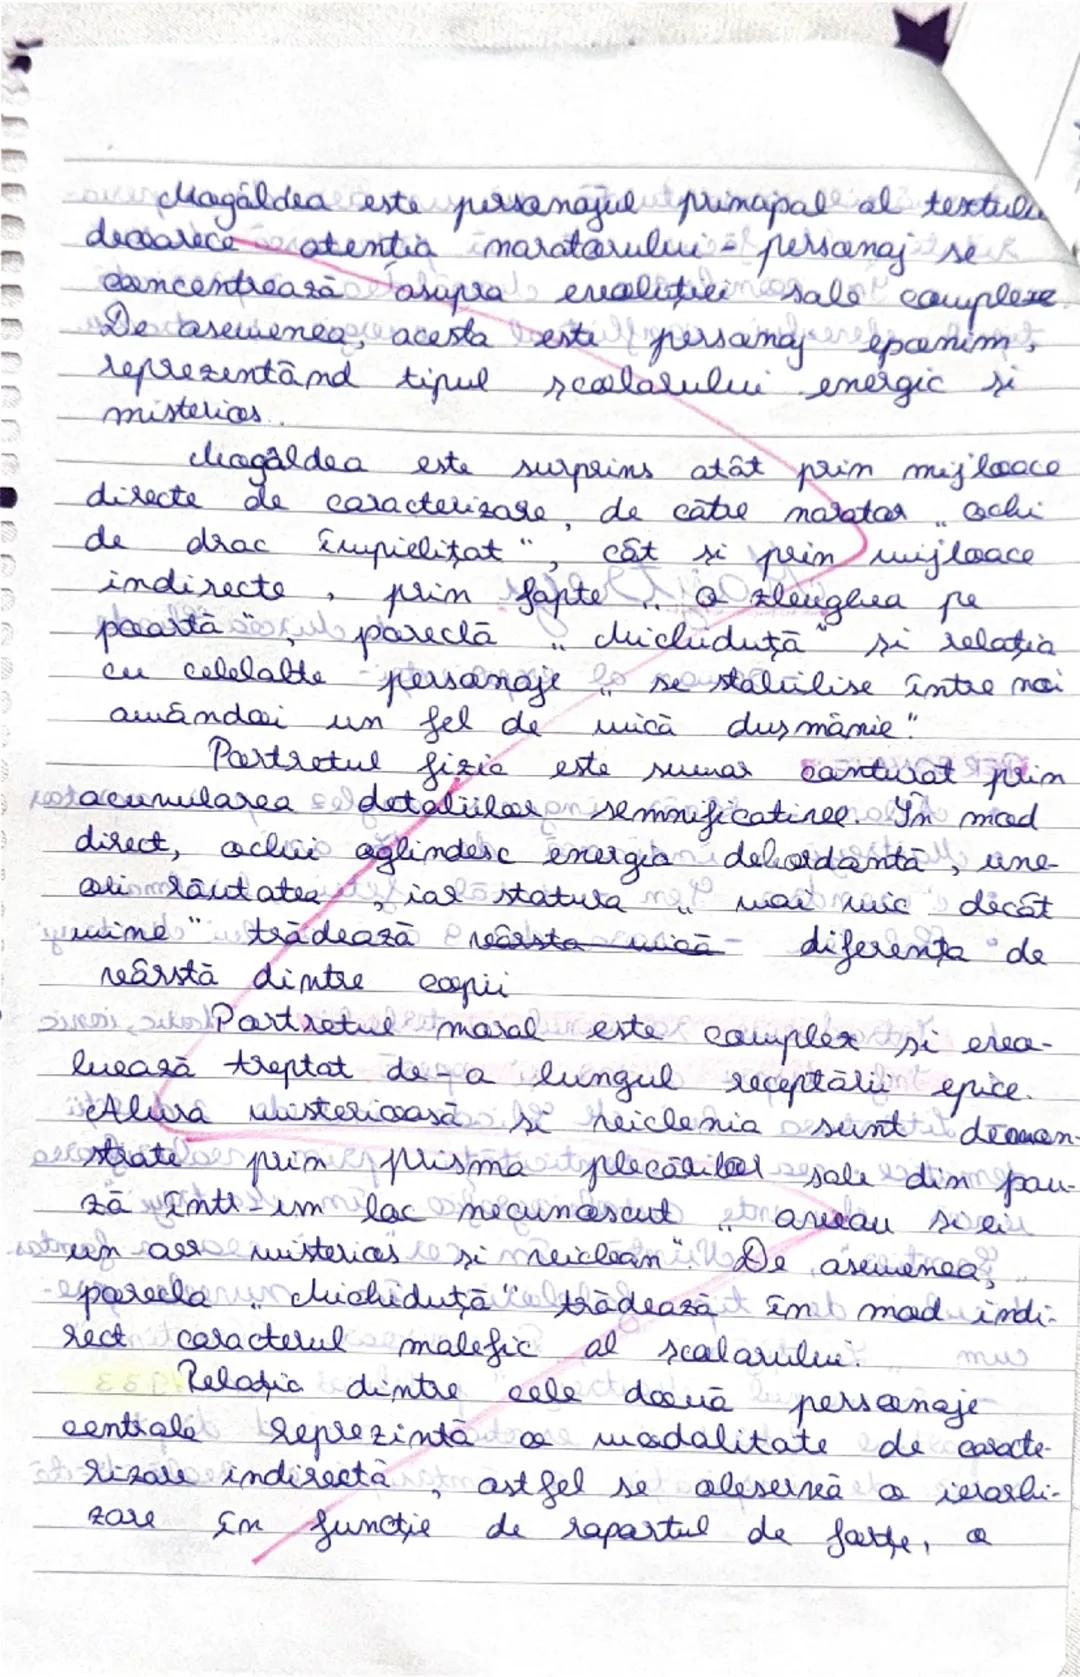 Mogâldea este personajul principal al textului
deoarece atenția naratorului-personaj se
concentrează asupra evoluției sale complexe.
De asemenea, acesta este personaj eponim,
reprezentând tipul școlarului energic și
misterios.
Mogâldea este surprins atât prin mijloace
directe de caracterizare, de către narator „ochi
de drac împielițat", cât și prin mijloace
indirecte, prin fapte „o zbughea pe
poartă", poreclă „Michiduță" și relația
cu celelalte personaje „se stabilise între noi
amândoi un fel de mică dușmănie."
Portretul fizic este sumar conturat prin
acumularea detaliilor semnificative. În mod
direct, ochii oglindesc energia debordantă, une-
ori răutatea, iar statura „mai mic decât
mine" trădează vârsta mică diferența de
vârstă dintre copii
Portretul moral este complex și evo-
luează treptat de-a lungul receptării epice.
Alura misterioasă și viclenia sunt demon-
strate prin prisma plecărilor sale din pau-
ză într-un loc necunoscut „aveau și ei
un aer misterios și viclean". De asemenea,
porecla „Michiduță" trădează în mod indi-
rect caracterul malefic al școlarului.
Relația dintre cele două personaje
centrale reprezintă o modalitate de caracte-
rizare indirectă, astfel se observă o ierarhi-
zare în funcție de raportul de forțe, o